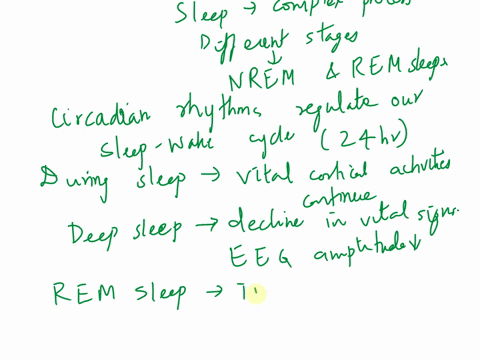 Sleep → complex process
Different stages
↓
NREM & REM sleep
Circadian rhythms regulate our
sleep-wake cycle (24hr)
During sleep → vital cortical activities
continue
Deep sleep → decline in vital signs.
EEG amplitude↓
REM sleep →